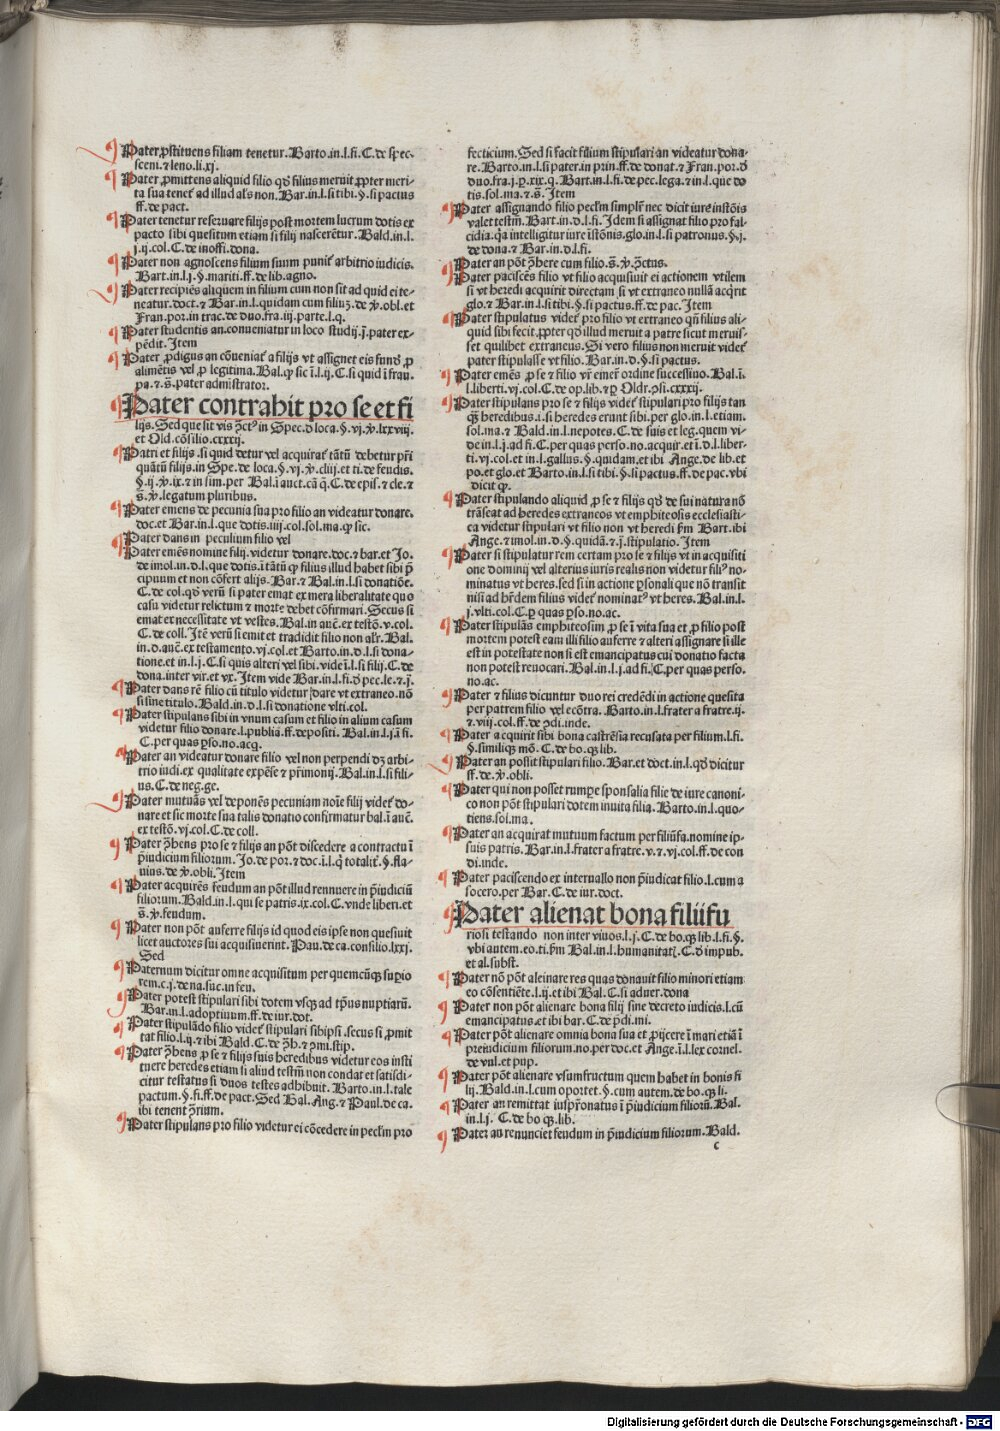 Pater ꝓstituens filiam tenetur. Barto.in.l.fi.C.de spec-
sceni.⁊ leno.li.xj.
Pater ꝓmittens aliquid filio qď filius meruit ꝓpter meri-
ta sua tenet̉ ad illud al̉s non. Bar.in.l.si tibi.§.si pactus
ff.de pact.
Pater tenetur reseruare filijs post mortem lucrum dotis ex
pacto sibi quesitum etiam si filij nascerẽtur. Bald.in.l.
j.ij.col.C.de inoffi.dona.
Pater non agnoscens filium suum punit̉ arbitrio iudicis.
Bart.in.l.j.§.mariti.ff.de lib.agno.
Pater recipiẽs aliquem in filium cum non sit ad quid ei te-
neatur.doct.⁊ Bar.in.l.quidam cum filiuꝫ.de v̉.obl.et
Fran.por.in trac.de duo.fra.iij.parte.l.q.
Pater studentis an.conueniatur in loco studij.j̃.pater ex-
pẽdit. Item
Pater ꝓdigus an cõueniat̉ a filijs vt assignet eis fundũ ꝓ
alimẽtis vel ꝓ legitima. Bal.ꝙ sic ĩ.l.ij.C.si quid ĩ frau.
pa.⁊ s̃.pater administrator.
Pater contrahit pro se et fi
lijs. Sed que sit vis ꝯct̉ in Spec.d̉ loca.§.vj.v̉.lxxviij.
et Old.cõsilio.cxxxij.
Patri et filijs.si quid detur vel acquirat̉ tãtũ debetur pr̃i
quãtũ filijs.in Spe.de loca.§.vj.v̉.cliij.et ti.de feudis.
§.ij.v̉.ix.⁊ in sim.per Bal.ĩ auct.cã q̃.C.de epis.⁊ cle.⁊
s̃.v̉.legatum pluribus.
Pater emens de pecunia sua pro filio an videatur donare.
doc.et Bar.in.l.que dotis.iij.col.sol.ma.ꝙ sic.
Pater dans in peculium filio vel
Pater emẽs nomine filij.videtur donare.doc.⁊ bar.et Jo.
de imol.in.d.l.que dotis.ĩ tãtũ ꝙ filius illud habet sibi p̃
cipuum et non cõfert alijs. Bar.⁊ Bal.in.l.si donatiõe.
C.de col.qď verũ si pater emat ex mera liberalitate quo
casu videtur relictum ⁊ morte debet cõfirmari. Secus si
emat ex necessitate vt vestes. Bal.in auct̉.ex testõ.v.col.
C.de coll. Itẽ verũ si emit et tradidit filio non al̉r. Bal.
in.d.auct̉.ex testamento.vj.col.et Barto.in.d.l.si dona-
tione.et in.l.j.C.si quis alteri vel sibi.vide ĩ.l.si filij.C.de
dona.inter vir.et vx. Item vide Bar.in.l.fi.d̉ pec.le.⁊.j̃.
Pater dans rẽ filio cũ titulo videtur dare vt extraneo.nõ
si sine titulo. Bald.in.d.l.si donatione vlti.col.
Pater stipulans sibi in vnum casum et filio in alium casum
videtur filio donare.l.publia.ff.depositi. Bal.in.l.jã fi.
C.per quas ꝑso.no.acq̃.
Pater an videatur donare filio vel non perpendi dꝫ arbi-
trio iudi.ex qualitate expẽse ⁊ pr̃imonij. Bal.in.l.si fili-
us.C.de neg.ge.
Pater mutuãs vel deponẽs pecuniam noĩe filij videt̉ do-
nare et sic morte sua talis donatio confirmatur bal.ĩ auct̉.
ex testõ.vj.col.C.de coll.
Pater ꝯhens pro se ⁊ filijs an põt discedere a contractu ĩ
p̃iudicium filiorum. Jo.de por.⁊ doc.ĩ.l.q̃ totalit̉.§.fla-
uius.de v̉.obli. Item
Pater acquirẽs feudum an põt illud rennuere in p̃iudiciũ
filiorum. Bald.in.l.qui se patris.ix.col.C.vnde liberi.et
s̃.v̉.feudum.
Pater non põt auferre filijs id quod eis ipse non quesiuit
licet auctores sui acquisiuerint. Pau.de ca.consilio.lxxj.
Sed
Paternum dicitur omne acquisitum per quemcũqꝫ suꝑio
rem.c.j.de na.suc.in feu.
Pater potest stipulari sibi dotem vsqꝫ ad tp̃us nuptiarũ.
Bar.in.l.adoptiuum.ff.de iur.dot.
Pater stipulãdo filio videt̉ stipulari sibipsi.secus si ꝓmit
tat filio.l.ij.⁊ ibi Bald.C.de ꝯh.⁊ ꝯmi.stip.
Pater ꝯhens ꝓ se ⁊ filijs suis heredibus videtur eos insti
tuere heredes etiam si aliud testm̃ non condat et satisdi-
citur testatus si duos testes adhibuit. Barto.in.l.tale
pactum.§.fi.ff.de pact. Sed Bal. Ang.⁊ Paul.de ca.
ibi tenent ꝯrium.
Pater stipulans pro filio videtur ei cõcedere in pecl̉m pro
fecticium. Sed si facit filium stipulari an videatur dona-
re. Barto.in.l.si pater.in prin.ff.de donat.⁊ Fran.por.d̉
duo.fra.j.ꝑ.xix.q. Bart.in.l.fi.de pec.lega.⁊ in.l.que do
tis.sol.ma.⁊ s̃. Item
Pater assignando filio pecl̉m simpl̉r nec dicit iure instõis
valet testm̃. Bart.in.d.l.fi. Idem si assignat filio pro fal-
cidia.q̃a intelligitur iure ĩstõnis.glo.in.l.si patronus.§.j.
de dona.⁊ Bar.in.d.l.fi.
Pater an põt ꝯhere cum filio.s̃.v̉.ꝯctus.
Pater paciscẽs filio vt filio acquisiuit ei actionem vtilem
si vt heredi acquirit directam si vt extraneo nullã acq̃rit
glo.⁊ Bar.in.l.si tibi.§.si pactus.ff.de pac. Item
Pater stipulatus videt̉ pro filio vt extraneo qñ filius ali-
quid sibi fecit.ꝓpter qď illud meruit a patre sicut meruis-
set quilibet extraneus. Si vero filius non meruit videt̉
pater stipulasse vt filio. Bar.in.d.§.si pactus.
Pater emẽs ꝓ se ⁊ filio vr̃ emer̃ ordine successiuo. Bal.ĩ.
l.liberti.vj.col.C.de op.lib.⁊ ꝑ Oldr.ꝯsi.cxxxij.
Pater stipulans pro se ⁊ filijs videt̉ stipulari pro filijs tan
qꝫ heredibus.i.si heredes erunt sibi.per glo.in.l.etiam.
sol.ma.⁊ Bald.in.l.nepotes.C.de suis et leg.quem vi-
de in.l.j.ad fi.C.per quas perso.no.acquir.et ĩ.d.l.liber-
ti.vj.col.et in.l.gallus.§.quidam.et ibi Ange.de lib.et
po.et glo.et Barto.in.l.si tibi.§.si pactus.ff.de pac.vbi
dicit ꝙ.
Pater stipulando aliquid ꝓ se ⁊ filijs qď de sui natura nõ
trãseat ad heredes extraneos vt emphiteosis ecclesiasti-
ca videtur stipulari vt filio non vt heredi ẜm Bart.ibi
Ange.⁊ imol.in.d.§.quidã.⁊ j̃.stipulatio. Item
Pater si stipulatur rem certam pro se ⁊ filijs vt in acquisiti
one dominij vel alterius iuris realis non videtur fili⁹ no-
minatus vt heres.sed si in actione ꝑsonali que nõ transit
nisi ad hr̃dem filius videt̉ nominat⁹ vt heres. Bal.in.l.
j.vlti.col.C.ꝑ quas ꝑso.no.ac.
Pater stipulãs emphiteosim ꝓ se ĩ vita sua et ꝓ filio post
mortem potest eam illi filio auferre ⁊ alteri assignare si ille
est in potestate non si est emancipatus cui donatio facta
non potest reuocari. Bal.in.l.j.ad fi.C.per quas perso.
no.ac.
Pater ⁊ filius dicuntur duo rei credẽdi in actione quesita
per patrem filio vel ecõtra. Barto.in.l.frater a fratre.ij.
⁊.viij.col.ff.de ꝯdi.inde.
Pater acquirit sibi bona castrẽsia recusata per filium.l.fi.
§.similiqꝫ mõ.C.de bo.qꝫ lib.
Pater an possit stipulari filio. Bar.et doct.in.l.qď dicitur
ff.de.v̉.obli.
Pater qui non posset rumpere sponsalia filie de iure canoni-
co non põt stipulari dotem inuita filia. Barto.in.l.quo-
tiens.sol.ma.
Pater an acquirat mutuum factum per filiũfa.nomine ip-
suis patris. Bar.in.l.frater a fratre.v.⁊.vj.col.ff.de con
di.inde.
Pater paciscendo ex interuallo non p̃iudicat filio.l.cum a
socero.per Bar.C.de iur.doct.
Pater alienat bona filii fu
riosi testando non inter viuos.l.j.C.de bo.qꝫ lib.l.fi.§.
vbi autem.eo.ti.ẜm Bal.in.l.humanitat̉.C.d̉ impub.
et al.subst.
Pater nõ põt aleinare res quas donauit filio minori etiam
eo cõsentiẽte.l.ij.et ibi Bal.C.si aduer.dona
Pater non põt alienare bona filij sine decreto iudicis.l.cũ
emancipatus.et ibi bar.C.de p̃di.mi.
Pater põt alienare omnia bona sua et ꝓijcere ĩ mari etiã ĩ
preiudicium filiorum.no.per doc.et Ange.ĩ.l.lex cornel.
de vul.et pup.
Pater põt alienare vsumfructum quem habet in bonis fi
lij. Bald.in.l.cum oportet.§.cum autem.de bo.qꝫ li.
Pater an remittat iuspr̃onatus ĩ p̃iudicium filiorũ. Bal.
in.l.j.C.de bo qꝫ.lib.
Pater an renunciet feudum in p̃iudicium filiorum. Bald.
c
Digitalisierung gefördert durch die Deutsche Forschungsgemeinschaft - DFG